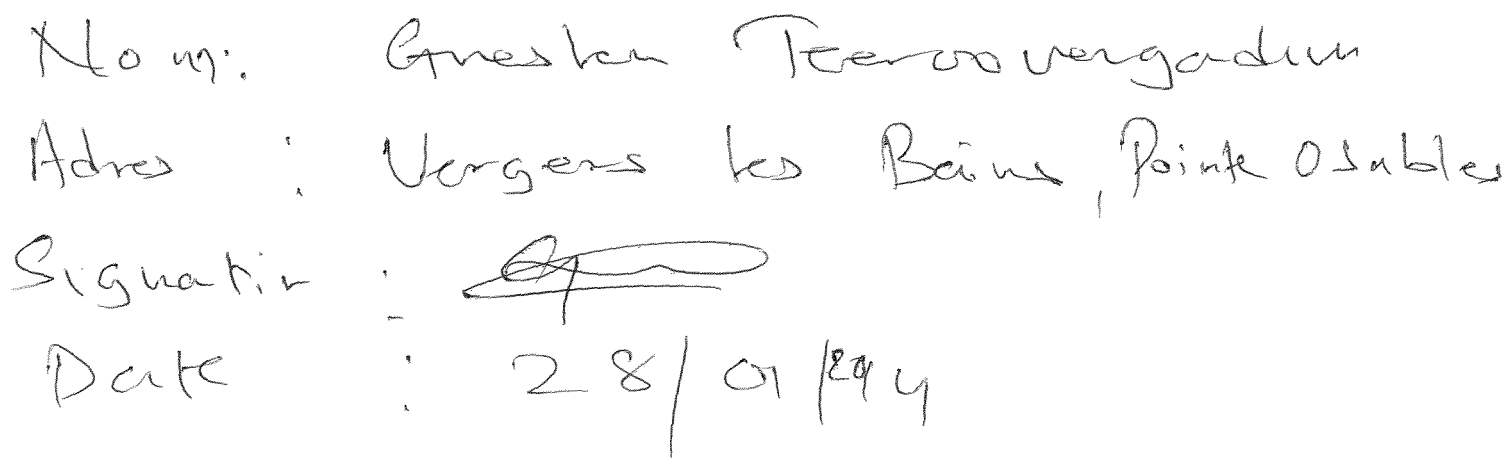 Nom: Gneshen Teeroovengadum
Adres : Vergers les Bains, Pointe O Sables
Signatir :
Date : 28/01/